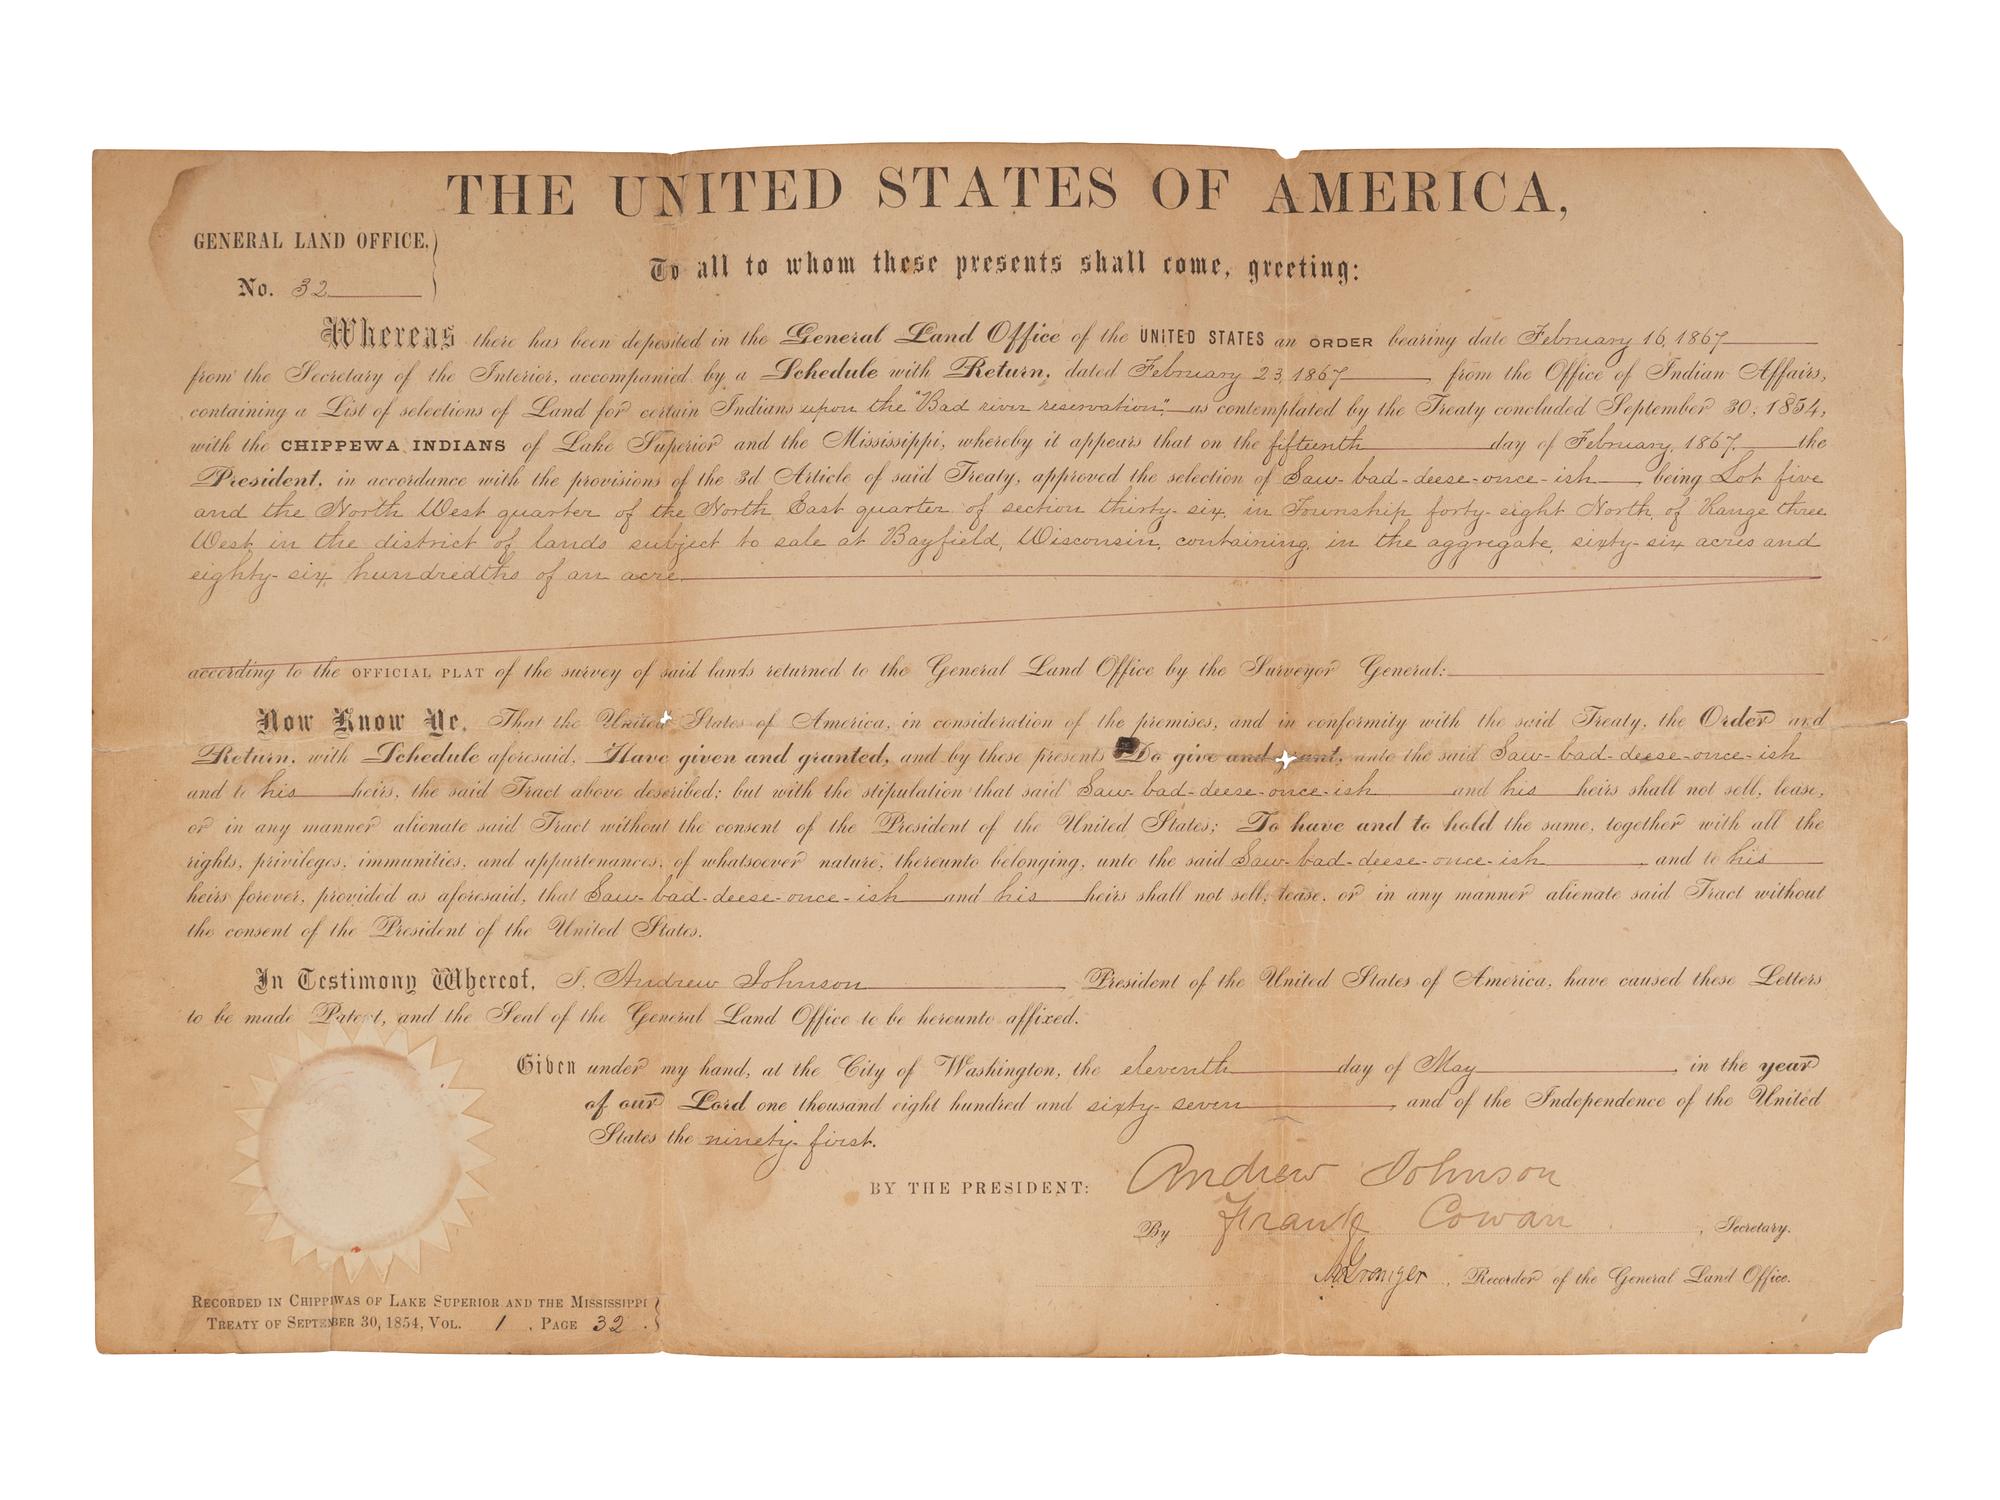 THE UNITED STATES OF AMERICA,
GENERAL LAND OFFICE.
No. 32
To all to whom these presents shall come, greeting:
Whereas there has been deposited in the General Land Office of the UNITED STATES an ORDER bearing date February 16, 1867
from the Secretary of the Interior, accompanied by a Schedule with Return, dated February 23, 1867, from the Office of Indian Affairs,
containing a List of selections of Land for certain Indians upon the "Bad river reservation", as contemplated by the Treaty concluded September 30, 1854,
with the CHIPPEWA INDIANS of Lake Superior and the Mississippi, whereby it appears that on the fifteenth day of February, 1867, the
President, in accordance with the provisions of the 3d Article of said Treaty, approved the selection of Saw-bad-deese-once-ish, being Lot five
and the North West quarter of the North East quarter of section thirty-six, in Township forty-eight North, of Range three
West in the district of lands subject to sale at Bayfield, Wisconsin, containing, in the aggregate, sixty-six acres and
eighty-six hundredths of an acre
according to the OFFICIAL PLAT of the survey of said lands returned to the General Land Office by the Surveyor General:
Now Know Ye, That the United States of America, in consideration of the premises, and in conformity with the said Treaty, the Order and
Return, with Schedule aforesaid, Have given and granted, and by these presents Do give and grant, unto the said Saw-bad-deese-once-ish
and to his heirs, the said Tract above described; but with the stipulation that said Saw-bad-deese-once-ish and his heirs shall not sell, lease,
or in any manner alienate said Tract without the consent of the President of the United States; To have and to hold the same, together with all the
rights, privileges, immunities, and appurtenances, of whatsoever nature, thereunto belonging, unto the said Saw-bad-deese-once-ish, and to his
heirs forever, provided as aforesaid, that Saw-bad-deese-once-ish and his heirs shall not sell, lease, or in any manner alienate said Tract without
the consent of the President of the United States.
In Testimony Whereof, I, Andrew Johnson, President of the United States of America, have caused these Letters
to be made Patent, and the Seal of the General Land Office to be hereunto affixed.
Given under my hand, at the City of Washington, the eleventh day of May, in the year
of our Lord one thousand eight hundred and sixty-seven, and of the Independence of the United
States the ninety-first.
BY THE PRESIDENT: Andrew Johnson
By Frank Cowan, Secretary.
Granger, Recorder of the General Land Office.
RECORDED IN CHIPPEWAS OF LAKE SUPERIOR AND THE MISSISSIPPI
TREATY OF SEPTEMBER 30, 1854, VOL. 1, PAGE 32.